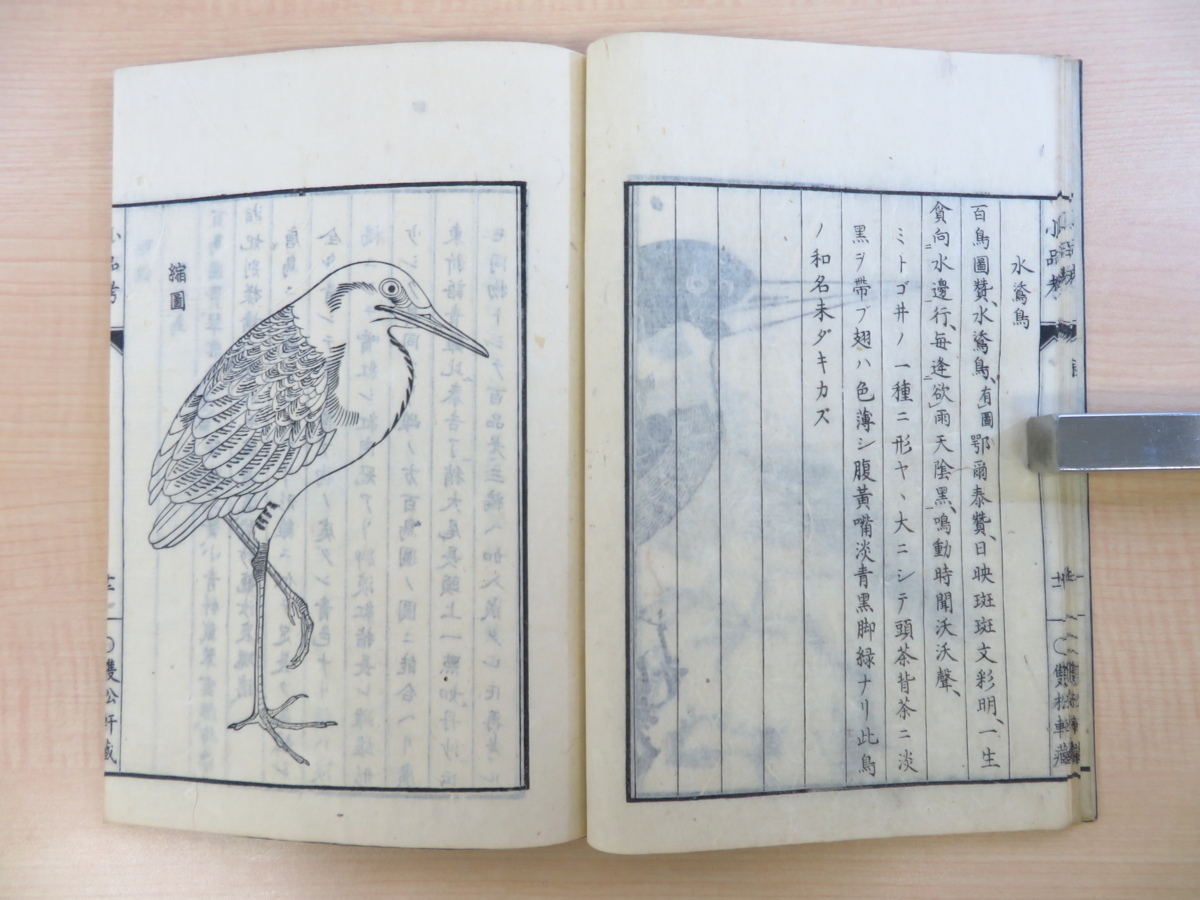 水鴗鳥
百鳥圖贊、水鴗鳥、有圖鄂爾泰贊、日映斑斑文彩明、一生
貪向水邊行、每逢欲雨天陰黑、鳴動時聞沃沃聲、
ミトゴ井ノ一種ニ形ヤヽ大ニシテ頭茶背茶ニ淡
黑ヲ帶ブ翅ハ色薄シ腹黃嘴淡青黑脚緑ナリ此鳥
ノ和名未ダキカズ
小品考
雙松軒藏
縮圖
雙松軒藏